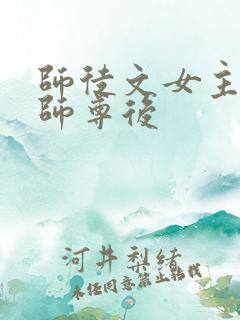 師徒文女主
師尊後
河井梨緒
未經同意禁止轉載